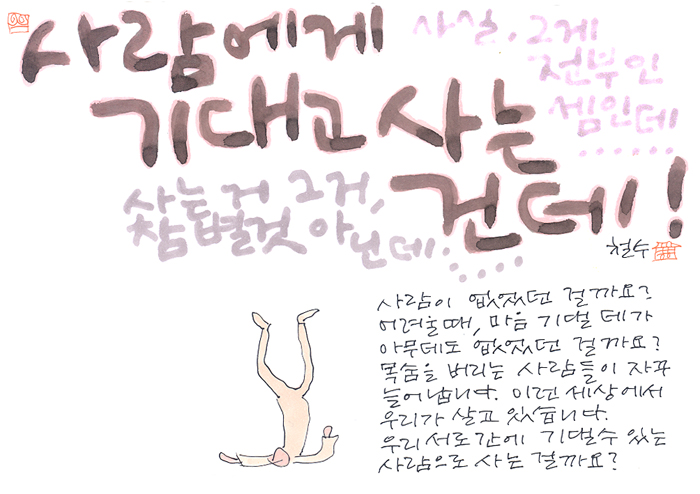 사람에게
기대고 사는
건데!
사실, 그게
전부인
셈인데
......
사는거 그거,
참 별것 아닌데.....
철수
사람이 없었던 걸까요?
어려울때, 마음 기댈 데가
아무데도 없었던 걸까요?
목숨을 버리는 사람들이 자꾸
늘어납니다. 이런 세상에서
우리가 살고 있습니다.
우리 서로간에 기댈수 있는
사람으로 사는 걸까요?